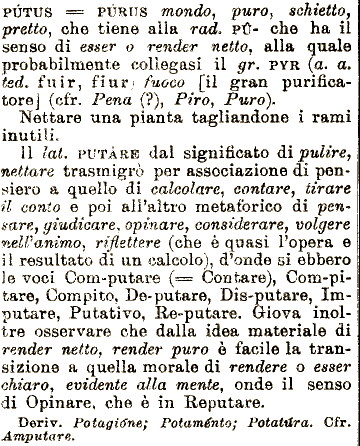 PŬTUS = PŪRUS mondo, puro, schietto,
pretto, che tiene alla rad. PŪ- che ha il
senso di esser o render netto, alla quale
probabilmente collegasi il gr. PYR (a. a.
ted. fuir, fiur fuoco [il gran purifica-
tore] (cfr. Pena (?), Piro, Puro).
Nettare una pianta tagliandone i rami
inutili.
Il lat. PUTÀRE dal significato di pulire,
nettare trasmigrò per associazione di pen-
siero a quello di calcolare, contare, tirare
il conto e poi all'altro metaforico di pen-
sare, giudicare, opinare, considerare, volgere
nell'animo, riflettere (che è quasi l'opera e
il resultato di un calcolo), d'onde si ebbero
le voci Com-putare (= Contare), Com-pi-
tare, Compito, De-putare, Dis-putare, Im-
putare, Putativo, Re-putare. Giova inol-
tre osservare che dalla idea materiale di
render netto, render puro è facile la tran-
sizione a quella morale di rendere o esser
chiaro, evidente alla mente, onde il senso
di Opinare, che è in Reputare.
Deriv. Potagióne; Potaménto; Potatúra. Cfr.
Amputare.